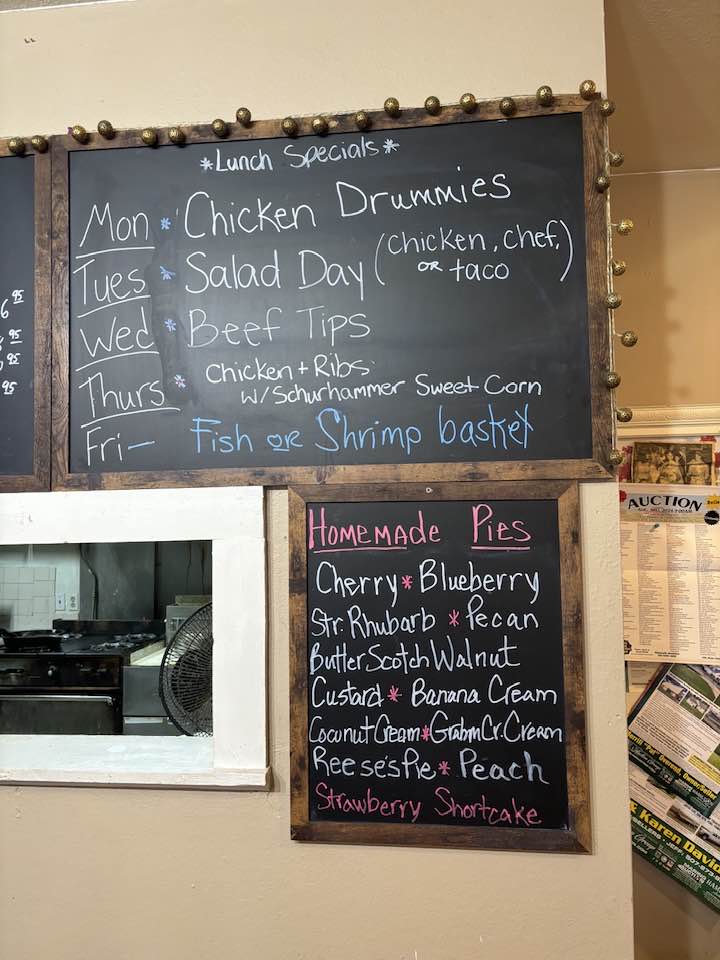 *Lunch Specials*
Mon * Chicken Drummies
Tues * Salad Day (chicken, chef, or taco)
Wed * Beef Tips
Thurs * Chicken + Ribs
w/Schurhammer Sweet Corn
Fri – Fish or Shrimp basket
6 95
95
95
95
Homemade Pies
Cherry * Blueberry
Str. Rhubarb * Pecan
ButterScotch Walnut
Custard * Banana Cream
Coconut Cream * Grahm Cr. Cream
Reese's Pie * Peach
Strawberry Shortcake
AUCTION
& Karen David